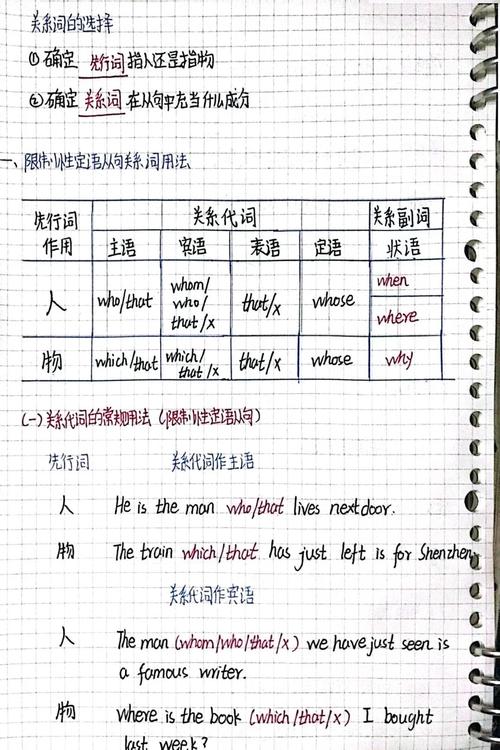 关系词的选择
①确定 先行词 指人还是指物
②确定 关系词 在从句中充当什么成分
一、限制性定语从句关系词用法
先行词 关系代词 关系副词
作用 主语 宾语 表语 定语 状语
人 who/that whom/who/that/x that/x whose when
where
物 which/that which/that/x that/x whose why
(一)关系代词的常规用法(限制性定语从句)
先行词 关系代词作主语
人 He is the man who/that lives next door.
物 The train which/that has just left is for Shenzhen.
关系代词作宾语
人 The man (whom/who/that/x) we have just seen is
a famous writer.
物 where is the book (which/that/x) I bought
last week?